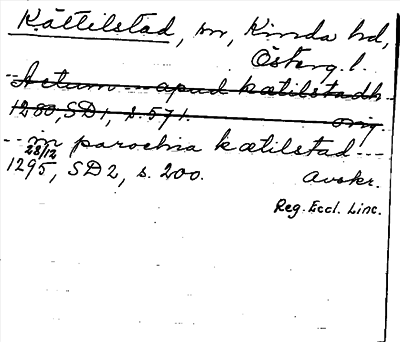 Kättilstad, sn, Kinda hd,
Österg. l.
--- Actum --- apud kætilstadh
1280, SD 1, s. 571. orig.
--- in parochia kætilstad ---
28/12
1295, SD 2, s. 200. Avskr.
Reg. Eccl. Linc.